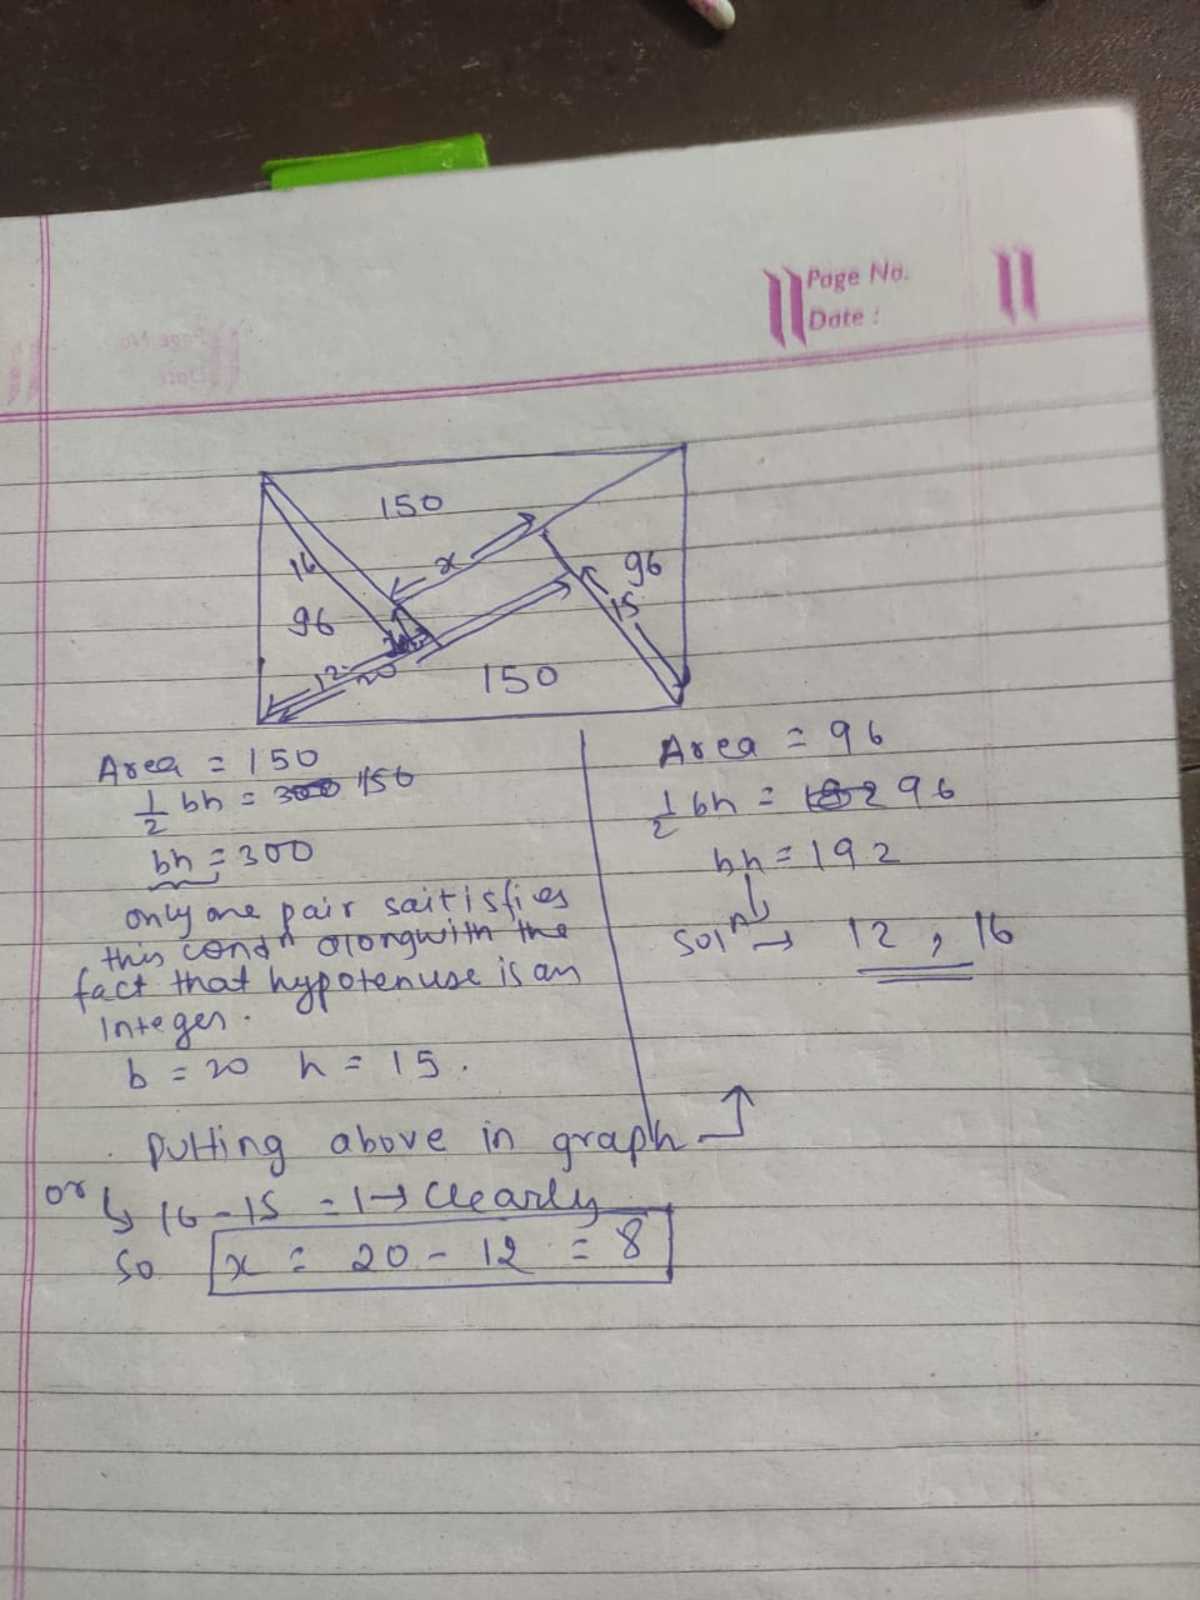 Page No.
Date :
150
x
16
96
96
15
12
20
150
Area = 150
1/2 bh = 150
bh = 300
only one pair saitisfies
this condn alongwith the
fact that hypotenuse is an
integer.
b = 20 h = 15.
Area = 96
1/2 bh = 96
bh = 192
soln → 12, 16
Putting above in graph
or ↳ 16 - 15 = 1 → Clearly
so x = 20 - 12 = 8